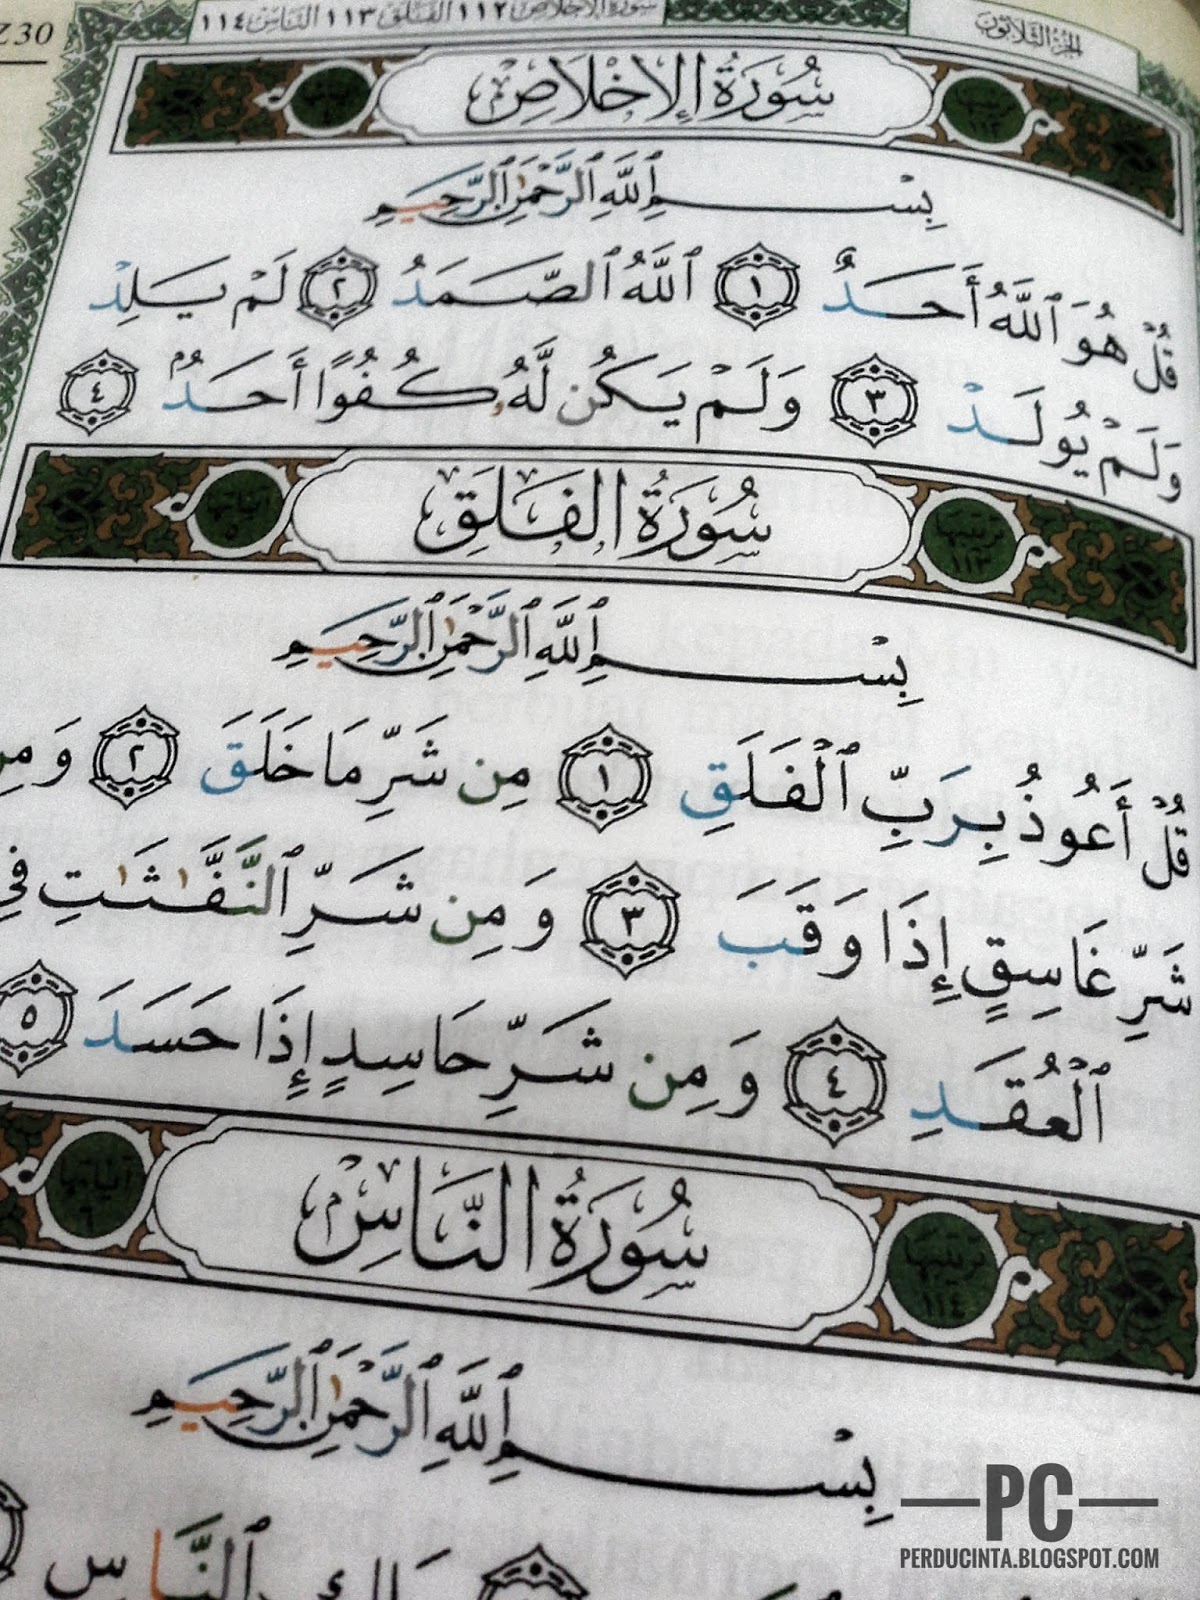 Z 30
سورة الإخلاص ١١٢ الفلق ١١٣ الناس ١١٤
الجزء الثلاثون
سُورَةُ الإِخْلَاصِ
بِسْمِ ٱللَّهِ ٱلرَّحْمَٰنِ ٱلرَّحِيمِ
قُلْ هُوَ ٱللَّهُ أَحَدٌ ١ ٱللَّهُ ٱلصَّمَدُ ٢ لَمْ يَلِدْ
وَلَمْ يُولَدْ ٣ وَلَمْ يَكُن لَّهُۥ كُفُوًا أَحَدٌۢ ٤
سُورَةُ الفَلَقِ
ترتيبها ١١٣
آياتها ٥
بِسْمِ ٱللَّهِ ٱلرَّحْمَٰنِ ٱلرَّحِيمِ
قُلْ أَعُوذُ بِرَبِّ ٱلْفَلَقِ ١ مِن شَرِّ مَا خَلَقَ ٢ وَمِن
شَرِّ غَاسِقٍ إِذَا وَقَبَ ٣ وَمِن شَرِّ ٱلنَّفَّٰثَٰتِ فِي
ٱلْعُقَدِ ٤ وَمِن شَرِّ حَاسِدٍ إِذَا حَسَدَ ٥
سُورَةُ النَّاسِ
ترتيبها ١١٤
آياتها ٦
بِسْمِ ٱللَّهِ ٱلرَّحْمَٰنِ ٱلرَّحِيمِ
PC
PERDUCINTA.BLOGSPOT.COM